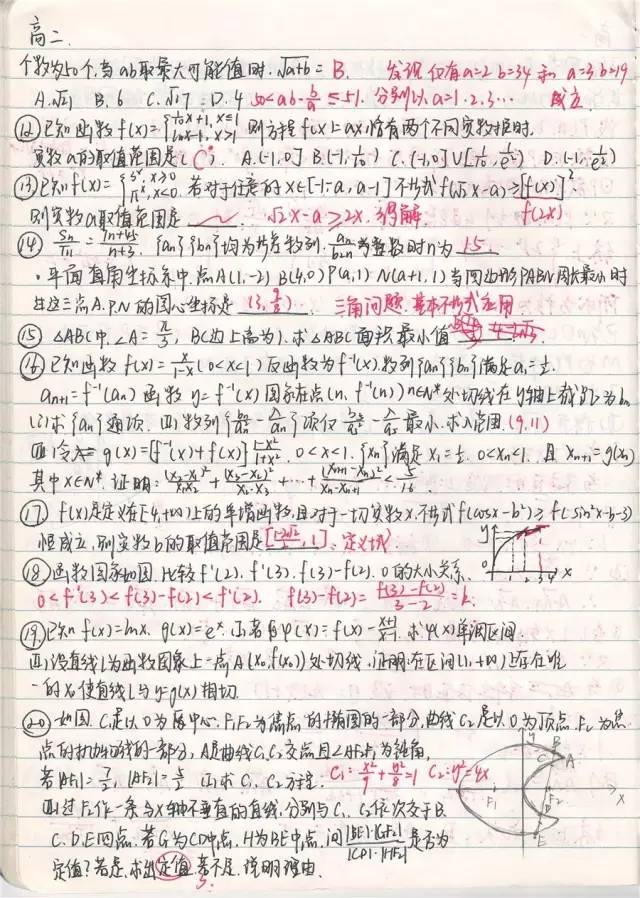 高二.
个数为50个,当ab取最大可能值时.√(a+b) = B. 发现仅有a=2 b=34 和 a=3 b=19
A.√21 B.6 C.√17 D.4 50<ab-b/a≤51. 分别以a=1.2.3… 成立.
⑫已知函数f(x)={1/10x+1, x≤1 lnx-1, x>1 则方程f(x)=ax恰有两个不同实数根时.
实数a的取值范围是( C ). A.(-1,0] B.(-1,1/10) C.(-1,0]∪[1/10,1/e²) D.(-1,1/e²)
⑬已知f(x)= x≥0 x<0. 若对于任意的x∈[-1-a,a-1]不等式f(√2x-a)≥[f(x)]²
则实数a取值范围是 √2x-a≥2x. 得解. f(2x)
⑭ Sn/Tn=(7n+45)/(n+3). {an}{bn}均为等差数列. an/b2n为整数时n为 15
·平面直角坐标系中.点A(1,-2) B(4,0) P(a,1) N(a+1,1)当四边形PABN周长最小时
过这三点A.P.N的圆心坐标是 (3,-9/8) 三角问题.基本不等式应用
⑮ △ABC中,∠A=π/3, BC边上高为1.求△ABC面积最小值
⑯已知函数f(x)=x/(1-x)(0<x<1)反函数为f⁻¹(x).数列{an}{bn}满足a1=1/2.
an+1=f⁻¹(an) 函数y=f⁻¹(x)图象在点(n,f⁻¹(n))n∈N*处切线在y轴上截距为bn
(I)求{an}通项 (II)数列{bn/an²-λ/an}项仅 最小.求λ范围.(9,11)
(III)令 g(x)=[f⁻¹(x)+f(x)](1-x²)/(1+x²). 0<x<1. {xn}满足x1=1/2. 0<xn<1. 且xn+1=g(xn)
其中x∈N*. 证明:(x2-x1)²/x1x2+(x3-x2)²/x2·x3+…+(xn+1-xn)²/xn·xn+1<5/16.
⑰ f(x)是定义在[-4,+∞)上的单增函数,且对于一切实数x,不等式f(cosx-b²)≥f(sin²x-b-3)
恒成立,则实数b的取值范围是[(1-2√2)/2,1]. 定义域.
⑱函数图象如图.比较f'(2).f'(3).f(3)-f(2).0的大小关系. y 0 1 2 3 4 x
0<f'(3)<f(3)-f(2)<f'(2). f(3)-f(2)=(f(3)-f(2))/(3-2)=k.
⑲已知f(x)=lnx. g(x)=eˣ. (I)若φ(x)=f(x)-(x+1)/(x-1).求φ(x)单调区间
(II)设直线l为函数图象上一点A(x0,f(x0))处切线.证明:在区间(1,+∞)上存在唯
一的x0使直线l与y=g(x)相切.
⑳如图.C1是以O为原中心.F1F2为焦点的椭圆的一部分,曲线C2是以O为顶点.F2为焦
点的抛物线的一部分,A是曲线C1C2交点且∠AF2F1为钝角,
若|AF1|=7/2 |AF2|=5/2 (I)求C1.C2方程. C1:x²/9+y²/8=1 C2:y²=4x
(II)过F2作一条与x轴不垂直的直线,分别与C1.C2依次交于B.
C.D.E四点.若G为CD中点.H为BE中点,问|BE|·|GF2|/|CD|·|HF2|是否为
定值?若是.求出定值.若不是.说明理由.
3.
y B A C F1 O F2 x D E